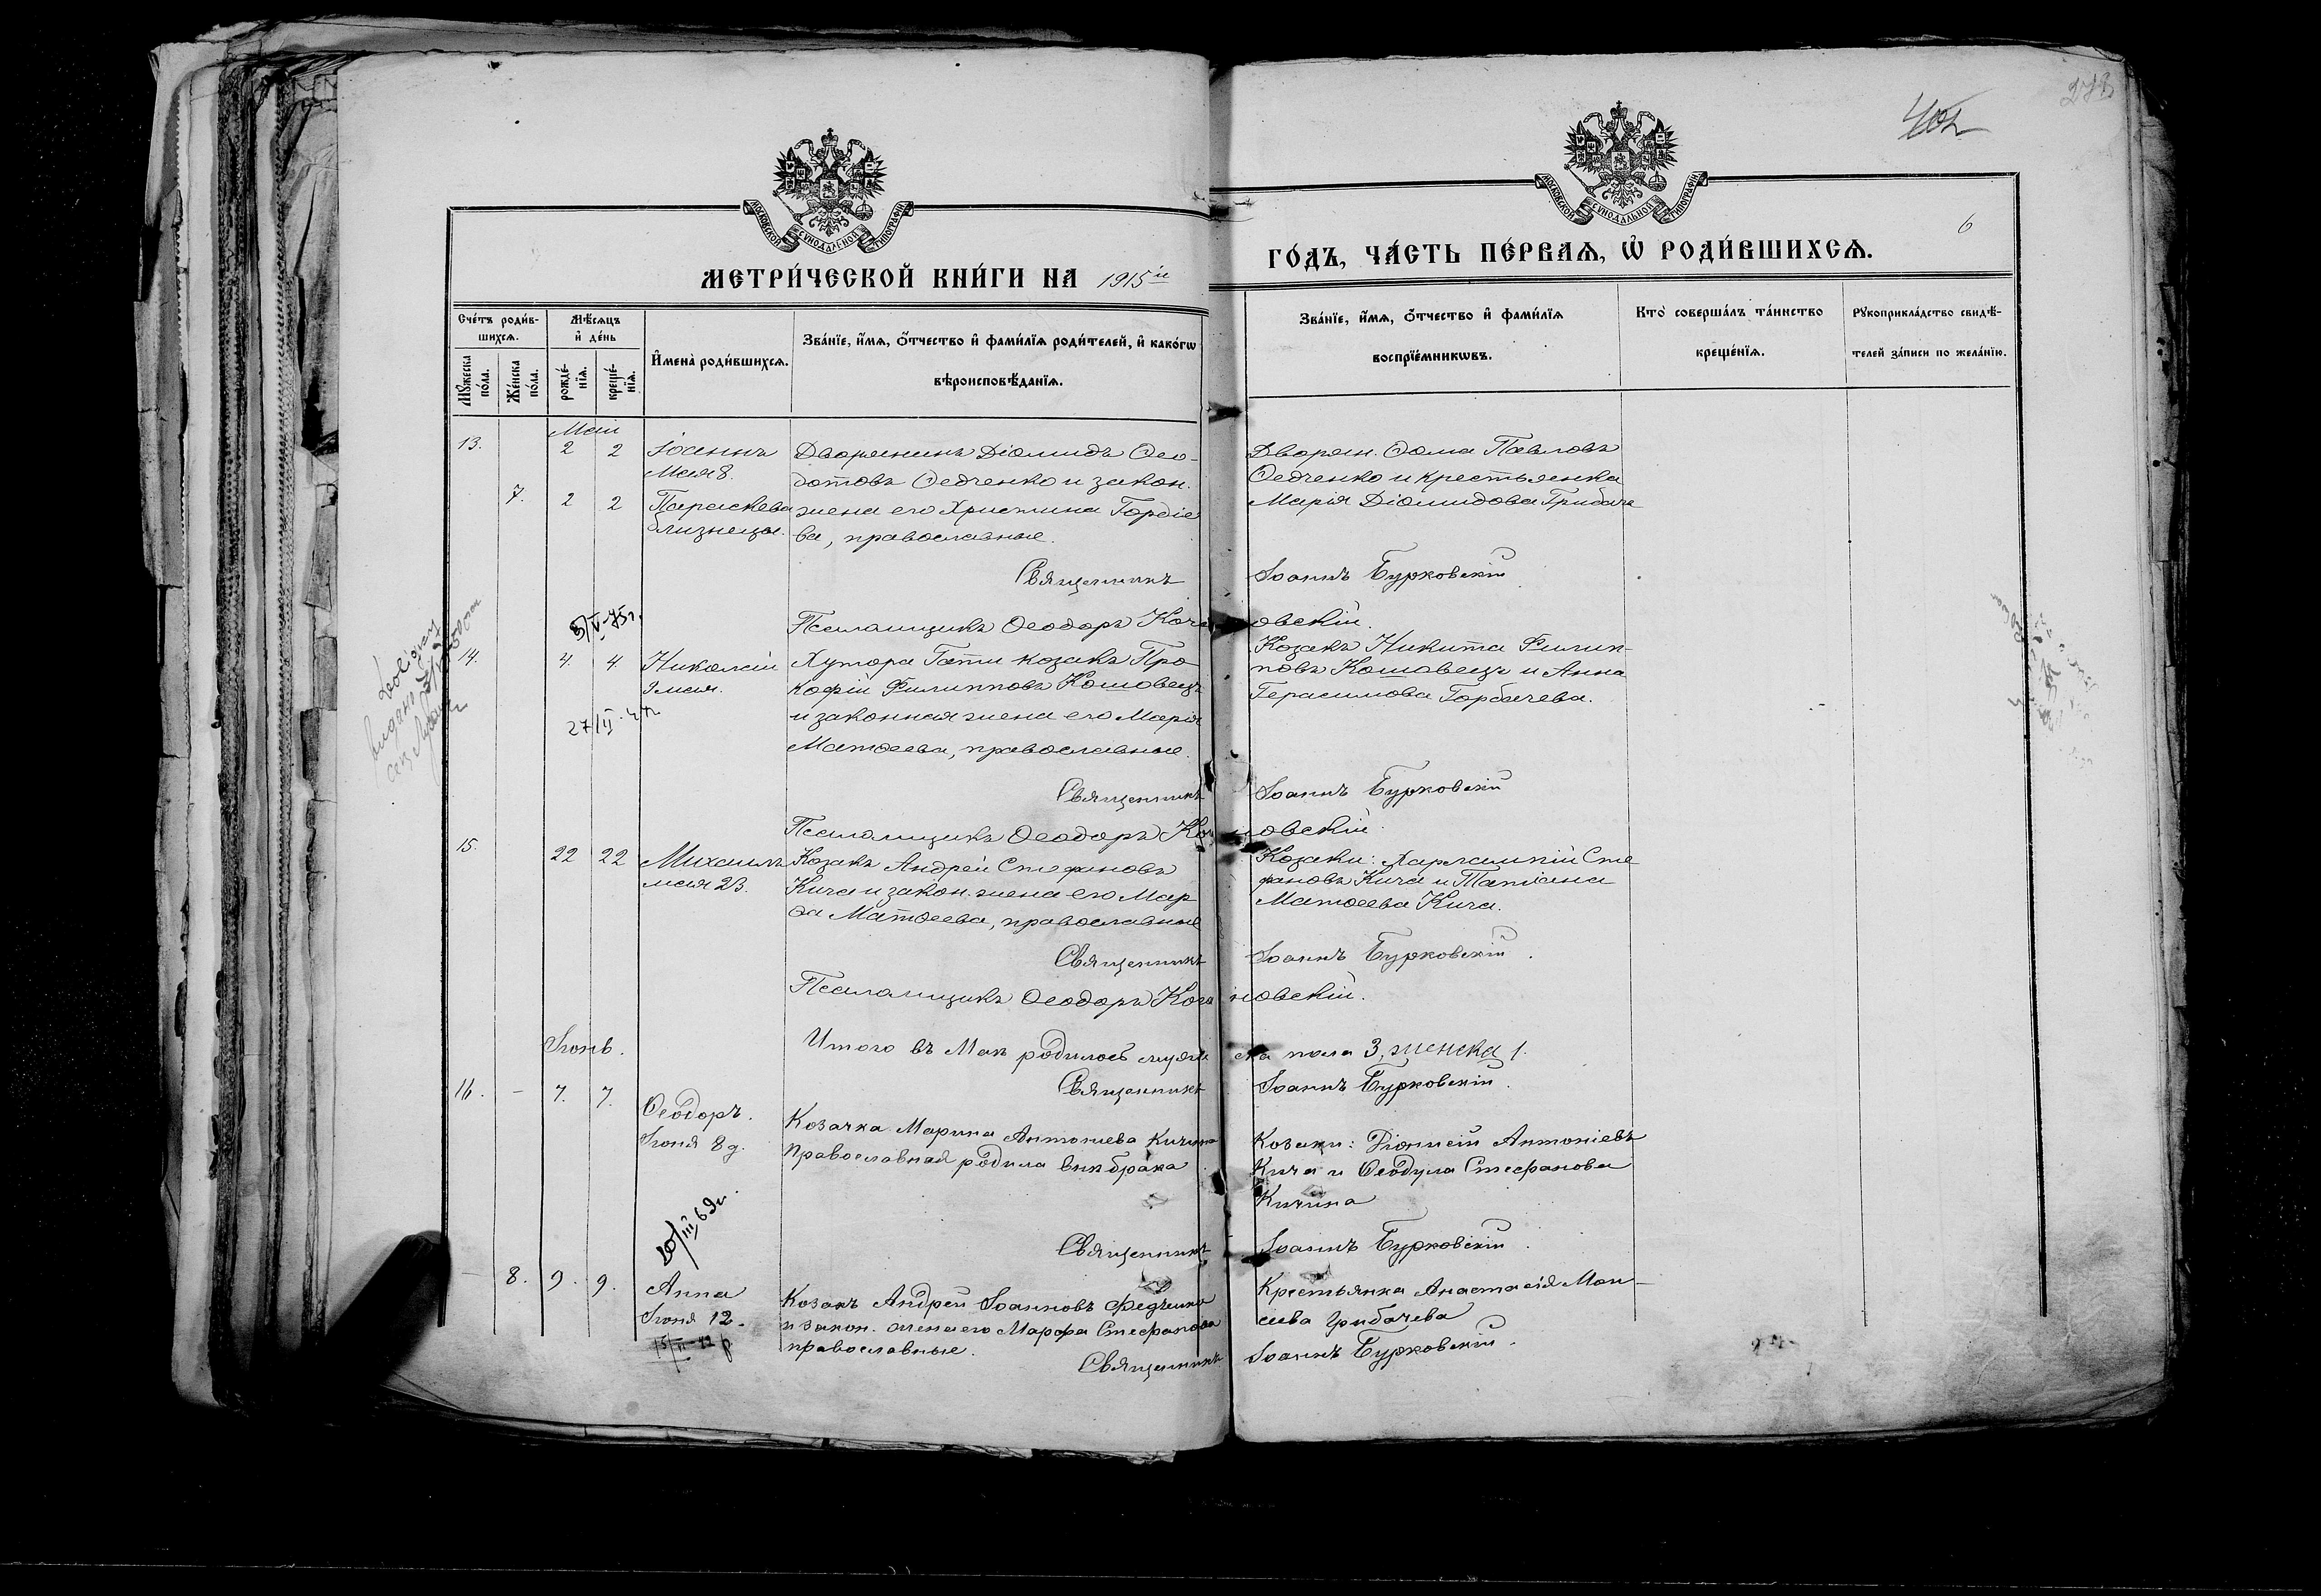 273
402
6
МОСКОВСКОЙ СѴНОДАЛЬНОЙ ТИПОГРАФІИ
МОСКОВСКОЙ СѴНОДАЛЬНОЙ ТИПОГРАФІИ
МЕТРИ́ЧЕСКОЙ КНИ́ГИ НА 1915й
ГО́ДЪ, ЧА́СТЬ ПЕ́РВАѦ, Ѡ҆ РОДИ́ВШИХСѦ.
Сче́тъ роди́в-
шихсѧ.
Мꙋ́жеска по́ла.
Же́нска по́ла.
Мѣ́сѧцъ
и҆ де́нь
рожде́-
нїѧ.
креще́-
нїѧ.
И҆мена̀ роди́вшихсѧ.
Зва́нїе, и҆́мѧ, ѻ҆́тчество и҆ фами́лїѧ роди́телей, и҆ како́гѡ
вѣроисповѣ́данїѧ.
Зва́нїе, и҆́мѧ, ѻ҆́тчество и҆ фами́лїѧ
воспрїе́мникѡвъ.
Кто̀ соверша́лъ та́инство
креще́нїѧ.
Рꙋкоприкла́дство свидѣ́-
телей за́писи по жела́нїю.
Май
13. 2 2 Іоаннъ
Мая 8.
7. 2 2 Параскева
близнецы.
Дворянинъ Діомидъ Ѳео-
дотовъ Ѳедченко и закон.
жена его Христина Гордіе
ва, православные.
Дворян. Ѳома Павловъ
Ѳедченко и крестьянка
Марія Діомидова Грибаче
Священникъ Іоаннъ Бурковскій
Псаломщикъ Ѳеодоръ Кочановскій.
5/V-75г.
14. 4. 4 Николай
9 мая.
27/II
Хутора Гати козакъ Про
кофій Филипповъ Кошовецъ
и законная жена его Марія
Матѳеева, православные.
Козакъ Никита Филип-
повъ Кошовецъ и Анна
Герасимова Горбачева.
Священникъ Іоаннъ Бурковскій
Псаломщикъ Ѳеодоръ Кочановскій.
15. 22 22 Михаилъ
мая 23.
Козакъ Андрей Стефановъ
Кича и закон. жена его Мар
ѳа Матѳеева, православные
Козаки: Харлампій Сте
фановъ Кича и Татіана
Матѳеева Кича.
Священникъ Іоаннъ Бурковскій.
Псаломщикъ Ѳеодоръ Кочановскій.
Итого въ Маѣ родилось мужеска пола 3, женска 1.
Священникъ Іоаннъ Бурковскій.
Іюнь.
16. - 7. 7. Ѳеодоръ.
Іюня 8 д.
Козачка Марина Антоніева Кичина
православная родила внѣ брака
Козаки: Діонисій Антоніевъ
Кича и Ѳеодула Стефанова
Кичина
20/III 69г.
Священникъ Іоаннъ Бурковскій.
- 8. 9. 9. Анна
Іюня 12.
Козакъ Андрей Іоанновъ Федченко
и закон. жена его Марфа Стефанова
православные.
Крестьянка Анастасія Мои-
сіева Грибачева
Священникъ Іоаннъ Бурковскій.